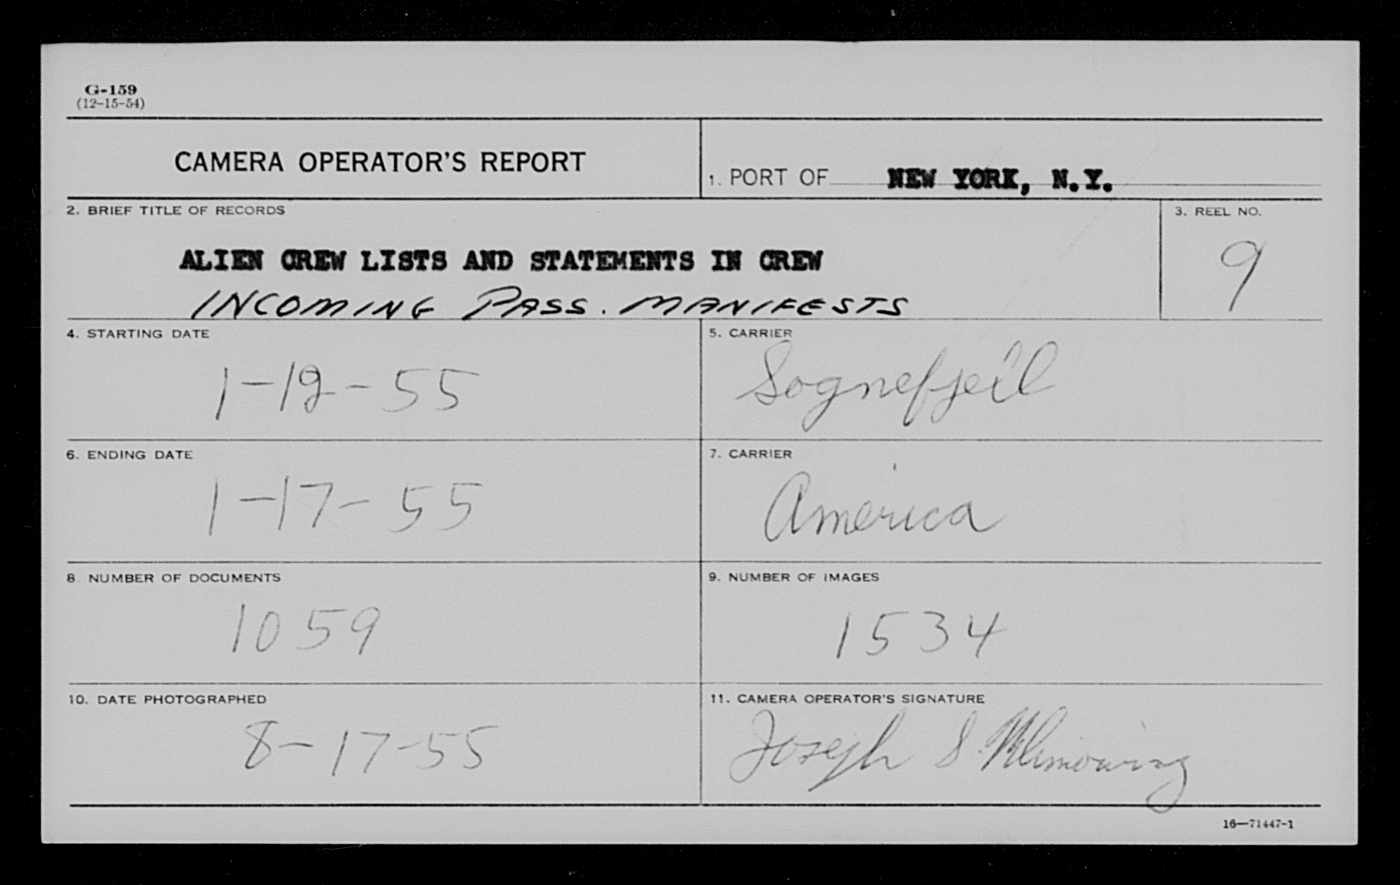 G-159
(12-15-54)
CAMERA OPERATOR'S REPORT
1. PORT OF NEW YORK, N.Y.
2. BRIEF TITLE OF RECORDS
3. REEL NO.
ALIEN CREW LISTS AND STATEMENTS IN CREW
INCOMING PASS. MANIFESTS
9
4. STARTING DATE
5. CARRIER
1-12-55
Sognefjeil
6. ENDING DATE
7. CARRIER
1-17-55
America
8 NUMBER OF DOCUMENTS
9. NUMBER OF IMAGES
1059
1534
10. DATE PHOTOGRAPHED
11. CAMERA OPERATOR'S SIGNATURE
8-17-55
Joseph S.
16—71447-1